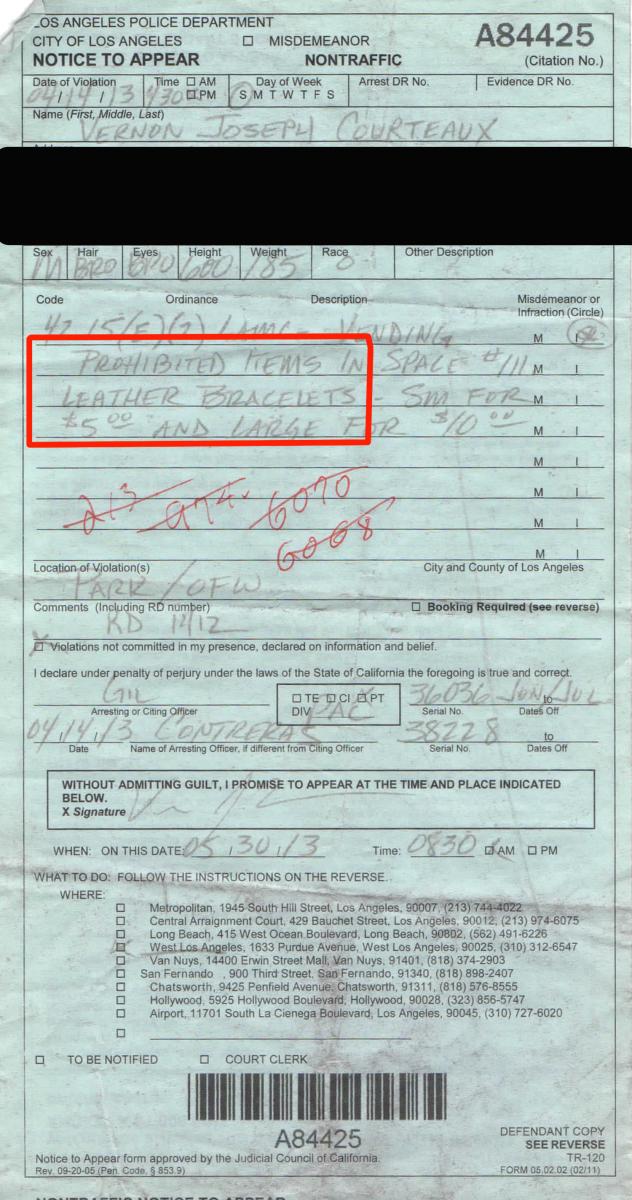 LOS ANGELES POLICE DEPARTMENT
CITY OF LOS ANGELES ☐ MISDEMEANOR A84425
NOTICE TO APPEAR NONTRAFFIC (Citation No.)
Date of Violation Time ☐ AM Day of Week Arrest DR No. Evidence DR No.
☐ PM S M T W T F S
04/14/13 430
Name (First, Middle, Last)
VERNON JOSEPH COURTEAUX
Sex Hair Eyes Height Weight Race Other Description
M BRO BRO 600 185 O
Code Ordinance Description Misdemeanor or
Infraction (Circle)
42.15(E)(2) LAMC - VENDING M I
PROHIBITED ITEMS IN SPACE #111 M I
LEATHER BRACELETS - SM FOR M I
$5.00 AND LARGE FOR $10.00 M I
M I
M I
213 974. 6070 M I
6068 M I
Location of Violation(s) City and County of Los Angeles
PARK / OFW
Comments (Including RD number) ☐ Booking Required (see reverse)
RD 1412
☐ Violations not committed in my presence, declared on information and belief.
I declare under penalty of perjury under the laws of the State of California the foregoing is true and correct.
GIL ☐ TE ☐ CI ☐ PT 36036 JUN to JUL
Arresting or Citing Officer DIV PAC Serial No. Dates Off
04/14/13 CONTRERAS 38228 to
Date Name of Arresting Officer, if different from Citing Officer Serial No. Dates Off
WITHOUT ADMITTING GUILT, I PROMISE TO APPEAR AT THE TIME AND PLACE INDICATED
BELOW.
X Signature
WHEN: ON THIS DATE: 05/30/13 Time: 0830 ☒ AM ☐ PM
WHAT TO DO: FOLLOW THE INSTRUCTIONS ON THE REVERSE.
WHERE:
☐ Metropolitan, 1945 South Hill Street, Los Angeles, 90007, (213) 744-4022
☐ Central Arraignment Court, 429 Bauchet Street, Los Angeles, 90012, (213) 974-6075
☐ Long Beach, 415 West Ocean Boulevard, Long Beach, 90802, (562) 491-6226
☒ West Los Angeles, 1633 Purdue Avenue, West Los Angeles, 90025, (310) 312-6547
☐ Van Nuys, 14400 Erwin Street Mall, Van Nuys, 91401, (818) 374-2903
☐ San Fernando , 900 Third Street, San Fernando, 91340, (818) 898-2407
☐ Chatsworth, 9425 Penfield Avenue, Chatsworth, 91311, (818) 576-8555
☐ Hollywood, 5925 Hollywood Boulevard, Hollywood, 90028, (323) 856-5747
☐ Airport, 11701 South La Cienega Boulevard, Los Angeles, 90045, (310) 727-6020
☐
☐ TO BE NOTIFIED ☐ COURT CLERK
A84425
DEFENDANT COPY
SEE REVERSE
Notice to Appear form approved by the Judicial Council of California. TR-120
Rev. 09-20-05 (Pen. Code, § 853.9) FORM 05.02.02 (02/11)
NONTRAFFIC NOTICE TO APPEAR